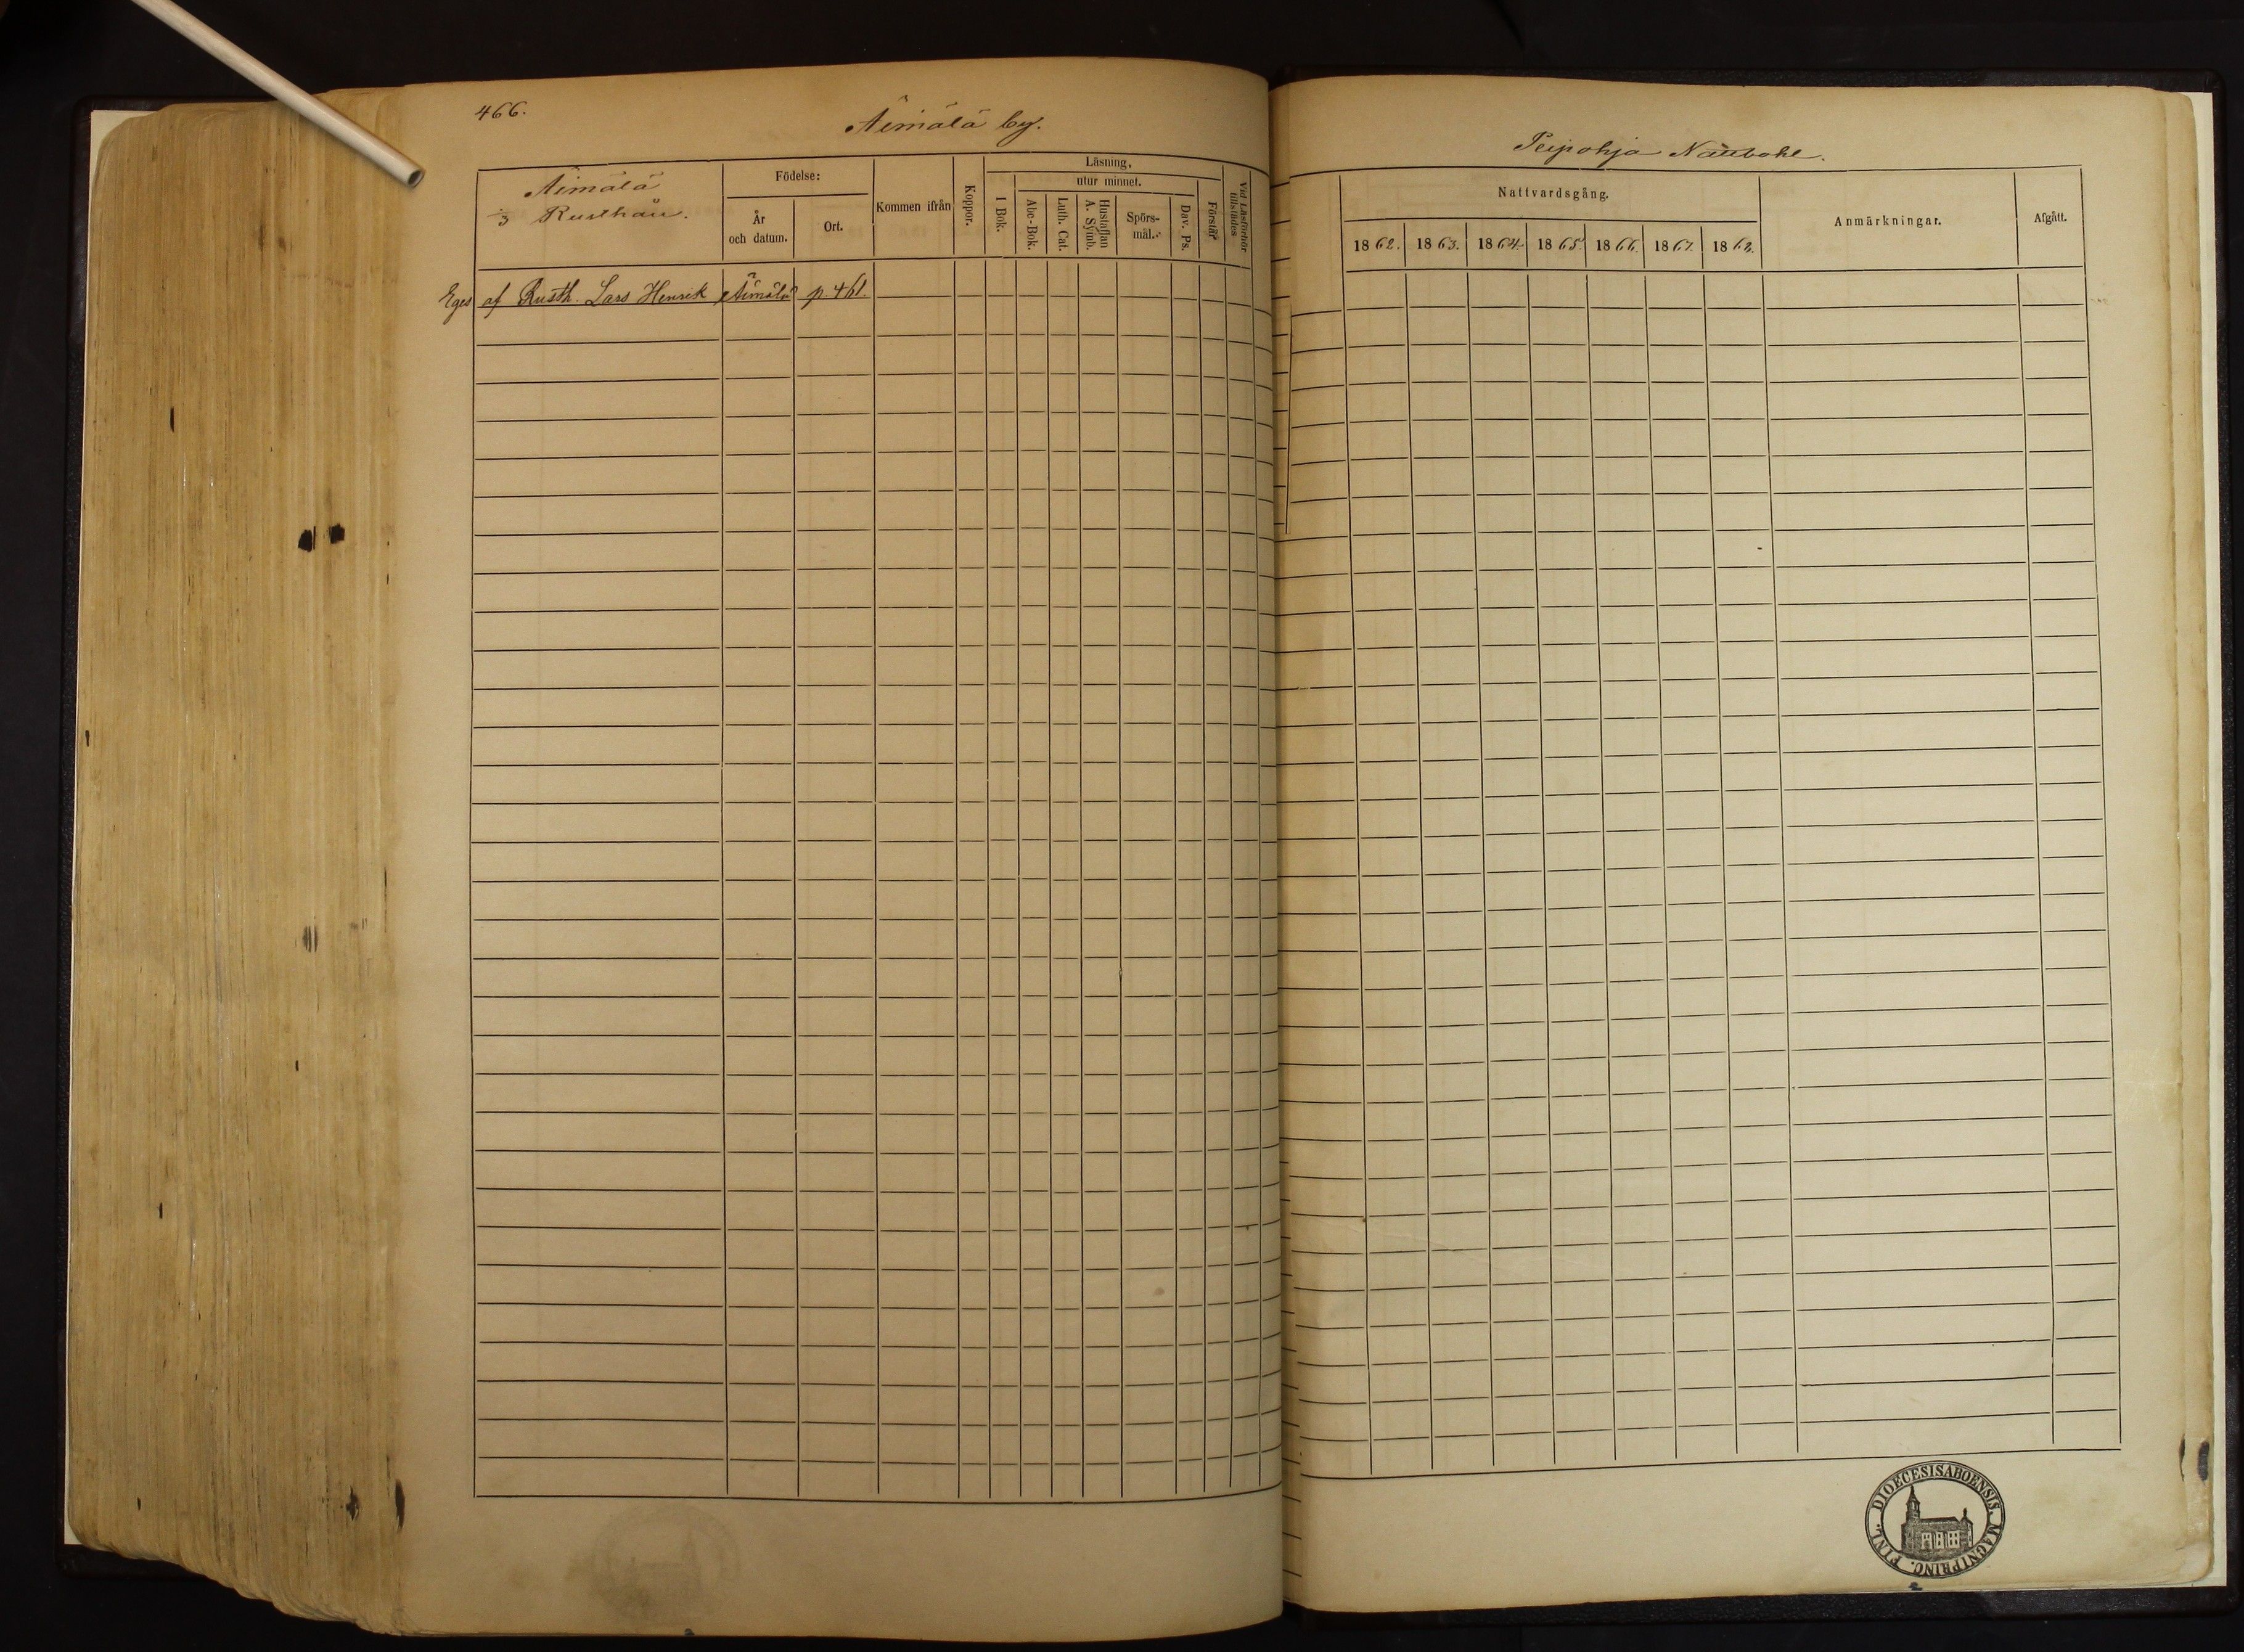 466.
Äimälä by.
Äimälä
3 Rusthåll.
Födelse:
År
och datum.
Ort.
Kommen ifrån
Koppor.
Läsning,
utur minnet.
I Bok.
Abc-Bok.
Luth. Cat.
Hustaflan
A. Symb.
Spörs-
mål.
Dav. Ps.
Förstår
Vid Läsförhör
tillstädes
Eges af Rusth. Lars Henrik Äimälä p. 461.
Peipohja Nattbohl.
Nattvardsgång.
1862. 1863. 1864. 1865. 1866. 1867. 1868.
Anmärkningar.
Afgått.
DIOECESIS ABOENSIS. MAGNI PRINC. FINL.